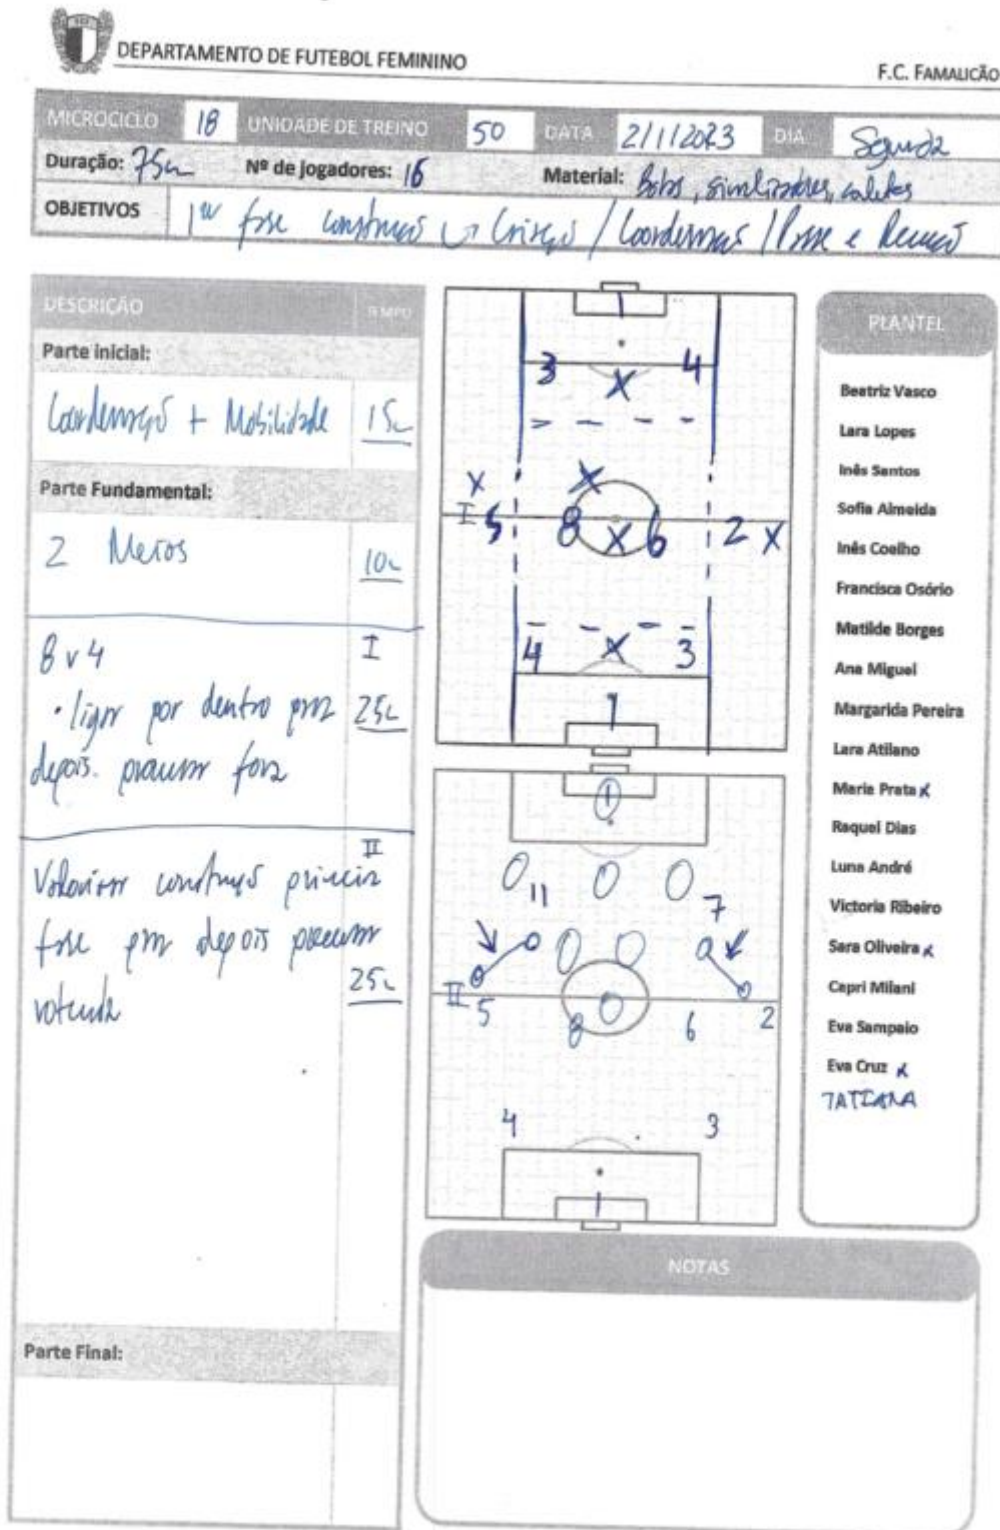 DEPARTAMENTO DE FUTEBOL FEMININO
F.C. FAMALICÃO
MICROCICLO 18 UNIDADE DE TREINO 50 DATA 2/1/2023 DIA Segunda
Duração: 75 Nº de jogadores: 16 Material: Bolas, sinalizadores, coletes
OBJETIVOS 1ª fase construção Criação / Coordenação / Posse e
DESCRIÇÃO TEMPO
Parte inicial:
Coordenação + Mobilidade 15
Parte Fundamental:
2 Meios 10
8 v 4 I
• ligar por dentro para 25
depois procurar fora
II
Valorizar construção primeira
fase para depois procurar
25
Parte Final:
1
3 4
X
X X
I 5 8 X 6 2 X
4 X 3
1
1
11 7
II 5 8 6 2
4 3
1
PLANTEL
Beatriz Vasco
Lara Lopes
Inês Santos
Sofia Almeida
Inês Coelho
Francisca Osório
Matilde Borges
Ana Miguel
Margarida Pereira
Lara Atilano
Maria Prata x
Raquel Dias
Luna André
Victoria Ribeiro
Sara Oliveira x
Capri Milani
Eva Sampaio
Eva Cruz x
TATIANA
NOTAS